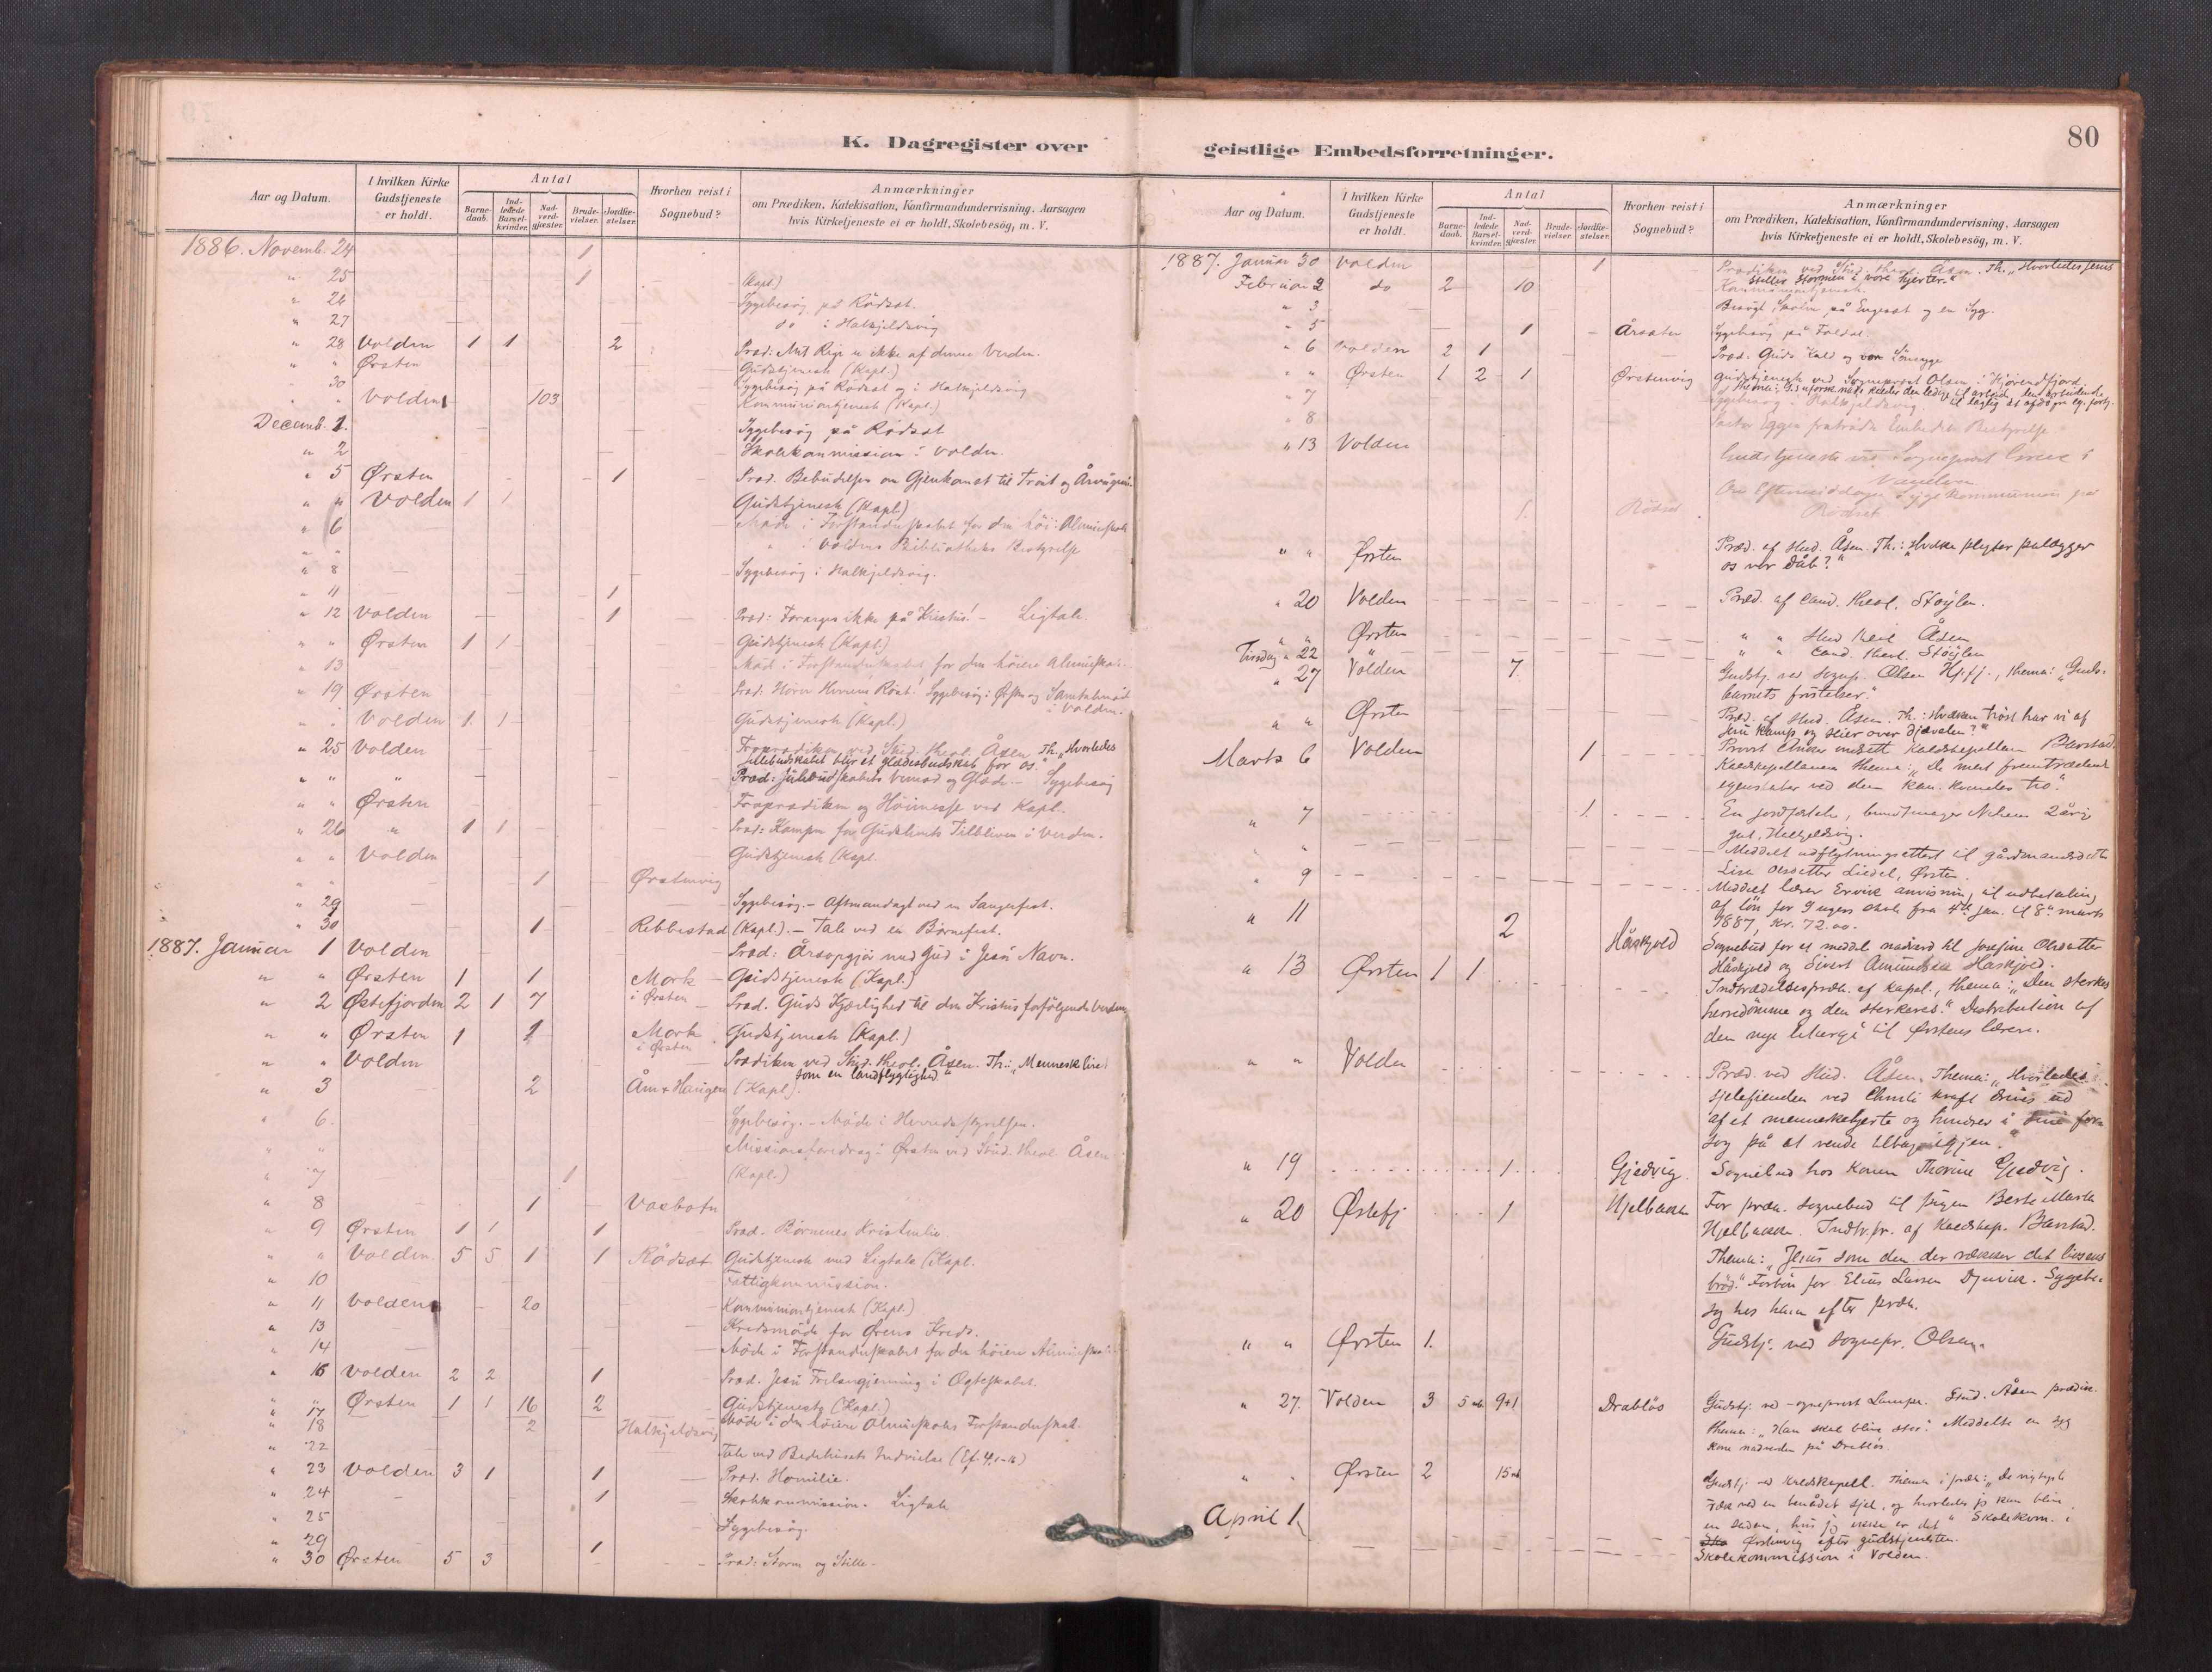 K. Dagregister over
Aar og Datum.
I hvilken Kirke
Gudstjeneste
er holdt.
Antal
Barne-
daab.
Ind-
ledede
Barsel-
kvinder.
Nad-
verd-
gjæster.
Brude-
vielser.
Jordfæ-
stelser.
Hvorhen reist i
Sognebud?
Anmærkninger
om Prædiken, Katekisation, Konfirmandundervisning, Aarsagen
hvis Kirketjeneste ei er holdt, Skolebesøg, m. V.
1886. Novemb. 24 1
" 25 1 (Kapl.)
" 26 Sygebesøg på Rödsæt.
" 27 do i Halkjeldsvig
" 28 Volden 1 1 2 Præd: Mit Rige er ikke af denne Verden.
" " Ørsten Gudstjeneste (Kapl.)
" 30 Sygebesøg på Rödsæt og i Halkjeldsvig
" " Volden 103 Kommuniontjeneste (Kapl.)
Decemb. 1. Sygebesøg på Rödsæt
" 2 Skolekommission i Volden.
" 5 Ørsten 1 Præd. Bebudelsen om Gjenkomst til Trøst og
" " Volden 1 1 Gudstjeneste (Kapl.)
" 6 Møde i Forstanderskabet for den höi: Almueskole
" " " i Voldens Bibliotheks Bestyrelse
" 8 Sygebesøg i Halkjeldsvig.
" 11 1
" 12 Volden 1 Præd: Forarges ikke på Kristus! - Ligtale.
" " Ørsten 1 1 Gudstjeneste (Kapl.)
" 13 Møde i Forstanderskabet for den høiere Almueskole.
" 19 Ørsten Præd: Hører Herrens Röst! Sygebesøg i Ørsten og Samtalemöde
i Volden.
" " Volden 1 1 Gudstjeneste (Kapl.)
" 25 Volden Froprædiken ved Stud. theol. Åsen. Th. "Hvorledes
Julebudskabet blir et glædesbudskab for os."
" " " Præd: Julebudskabets Glæde. - Sygebesøg
" " Ørsten Froprædiken og Höimesse ved Kapl.
" 26 " 1 1 Præd: Kampen for Gudslivets Tilbliven i Verden.
" " Volden Gudstjeneste (Kapl.
" " 1 Ørstenvig
" 29 Sygebesøg. - Aftenandagt ved en Sangerfest.
" 30 1 Rebbestad (Kapl.). - Tale ved en Børnefest.
1887. Januar 1 Volden Præd: Årsopgjör med Gud i Jesu Navn.
" " Ørsten 1 1 Mork
i Ørsten Gudstjeneste (Kapl.)
" 2 Østefjorden 2 1 7 Præd. Guds Kjærlighed til den Kristus forfølgende Verden
" " Ørsten 1 1 Mork
i Ørsten Gudstjeneste (Kapl.)
" " Volden Prædiken ved Stud. theol. Åsen. Th: "Menneskelivet
som en landflygtighed"
" 3 2 Åm & Haugen (Kapl).
" 6. Sygebesøg. - Møde i Herredsstyrelsen.
" " Missionsforedrag i Ørsten ved Stud. theol. Åsen
" 7 1 (Kapl.)
" 8 1 Vasbotn
" 9 Ørsten 1 1 1 Præd. Börnenes Kristenliv
" " Volden 5 5 1 1 Rödsæt Gudstjeneste med Ligtale (Kapl.
" 10 Fattigkommission.
" 11 Volden 20 Kommuniontjeneste (Kapl.)
" 13 Kredsmöde for Ørens Kreds.
" 14 Møde i Forstanderskabet for den höiere Almueskole
" 16 Volden 2 2 1 Præd. Jesu Frelsergjerning i Ægteskabet.
" " Ørsten 1 1 16 2 Gudstjeneste (Kapl.)
" 17 Møde i den höiere Almueskoles Forstanderskab.
" 18 2 Halkjeldsvig
" 22 Tale ved Bedehusets Indvielse (Ef. 4,1-16)
" 23 Volden 3 1 1 Præd. Homilie.
" 24 1 Skolekommission. Ligtale
" 25 Sygebesøg.
" 29 1
" 30 Ørsten 5 3 Præd: Storm og Stille.
80
geistlige Embedsforretninger.
Aar og Datum.
I hvilken Kirke
Gudstjeneste
er holdt.
Antal
Barne-
daab.
Ind-
ledede
Barsel-
kvinder.
Nad-
verd-
gjæster.
Brude-
vielser.
Jordfæ-
stelser.
Hvorhen reist i
Sognebud?
Anmærkninger
om Prædiken, Katekisation, Konfirmandundervisning, Aarsagen
hvis Kirketjeneste ei er holdt, Skolebesøg, m. V.
1887. Januar 30 Volden 1 Prædiken ved Stud. theol. Åsen. Th. "Hvorledes Jesus
stiller Stormen i vore hjerter."
Februar 2 do 2 10 Kommuniontjeneste.
" 3 Besøgt Skolen på Engeset og en Syg.
" 5 1 Årsæter Sygebesøg på Foldal.
" 6 Volden 2 1 Præd. Guds Kald og vor
" " Ørsten 1 2 1 Ørstenvig Gudstjeneste ved Sogneprest Olsen i Hjörendfjord.
" 7 Sygebesøg i Halkjeldsvig.
" 8 Pastor Eggen fratrådte Embedets Bestyrelse.
" 13 Volden Gudstjeneste ved Sogneprest i
Vanelven
Om Eftermiddagen sygekommunion på
1. Rödsæt Rödsæt
" " Ørsten Præd. af stud. Åsen. Th.: "Hvilke pligter pålægger
os vor dåb?"
" 20 Volden Præd. af cand. theol. Støylen.
" " Ørsten " " Stud theol Åsen
Tirsdag " 22 " " " cand. theol. Støylen
" 27 Volden 7. Gudstj. ved sognepr. Olsen Hj.fj., thema: "Guds-
barnets fristelser."
" " Ørsten Præd. af stud. Åsen. Th.: Hvilken trøst har vi af
Jesu Kamp og seier over djævelen?"
Marts 6 Volden 1 Provst indsatte Kaldskapellan Barstad.
Kaldskapellanens thema: "De mest fremtrædende
egenskaber ved den kan. kvindes tro."
" 7 1 En jordfæstelse, 2 årig
gut, Halkjeldsvig.
" " Meddelt udflytningsattest til gårdmandsdatter
Lisa Olsdatter Liadal, Ørsten.
" 9 Meddelt lærer Ervik anvisning til udbetaling
af løn for 9 ugers skole fra 4de jan. til 8de marts
1887, Kr. 72.00.
" 11 2 Håskjold Sognebud for at meddele nadverd til Josefine Olsdatter
Håskjold og Sivert Amundsen Håskjold.
" 13 Ørsten 1 1 Indtrædelsespræk. af kapel., thema: "Den sterkes
herredömme og den sterkeres." Distribution af
den nye liturgi til Ørstens lærere.
" " Volden Præd. ved stud. Åsen. Thema: "Hvorledes
sjelefienden ved Christi kraft drives ud
af et menneskehjerte og hindres i sine forsøg
på at vende tilbage igjen."
" 19 1 Gjedvig. Sognebud hos konen Thorine Gjedvig.
" 20 Østefj 1 Hjelbakke For præk. sognebud til pigen Berte Marta
Hjelbakke. Indtr.pr. af Kaldskap. Barstad.
Thema: "Jesus som den der rækker det livsens
bröd." Forbön for Elius Larsen Djuvik. Sygebe-
sög hos ham efter præk.
" " Ørsten 1. Gudstj. ved sognepr. Olsen.
" 27. Volden 3 5 9+1 Drablös Gudstj. ved sogneprest Lampe. Stud. Åsen prædik.
thema: "Han skal blive stor." Meddelte en syg
kone nadverden på Drablös.
" " Ørsten 2 15 Gudstj. ved Kaldskapell. Thema i præk: "De vigtigste
træk ved en benådet sjel, og hvorledes jeg kan blive
en sådan, hvis jeg ikke er det" Skolekom. i
Ørstenvig efter gudstjenesten.
April 1 Skolekommission i Volden.